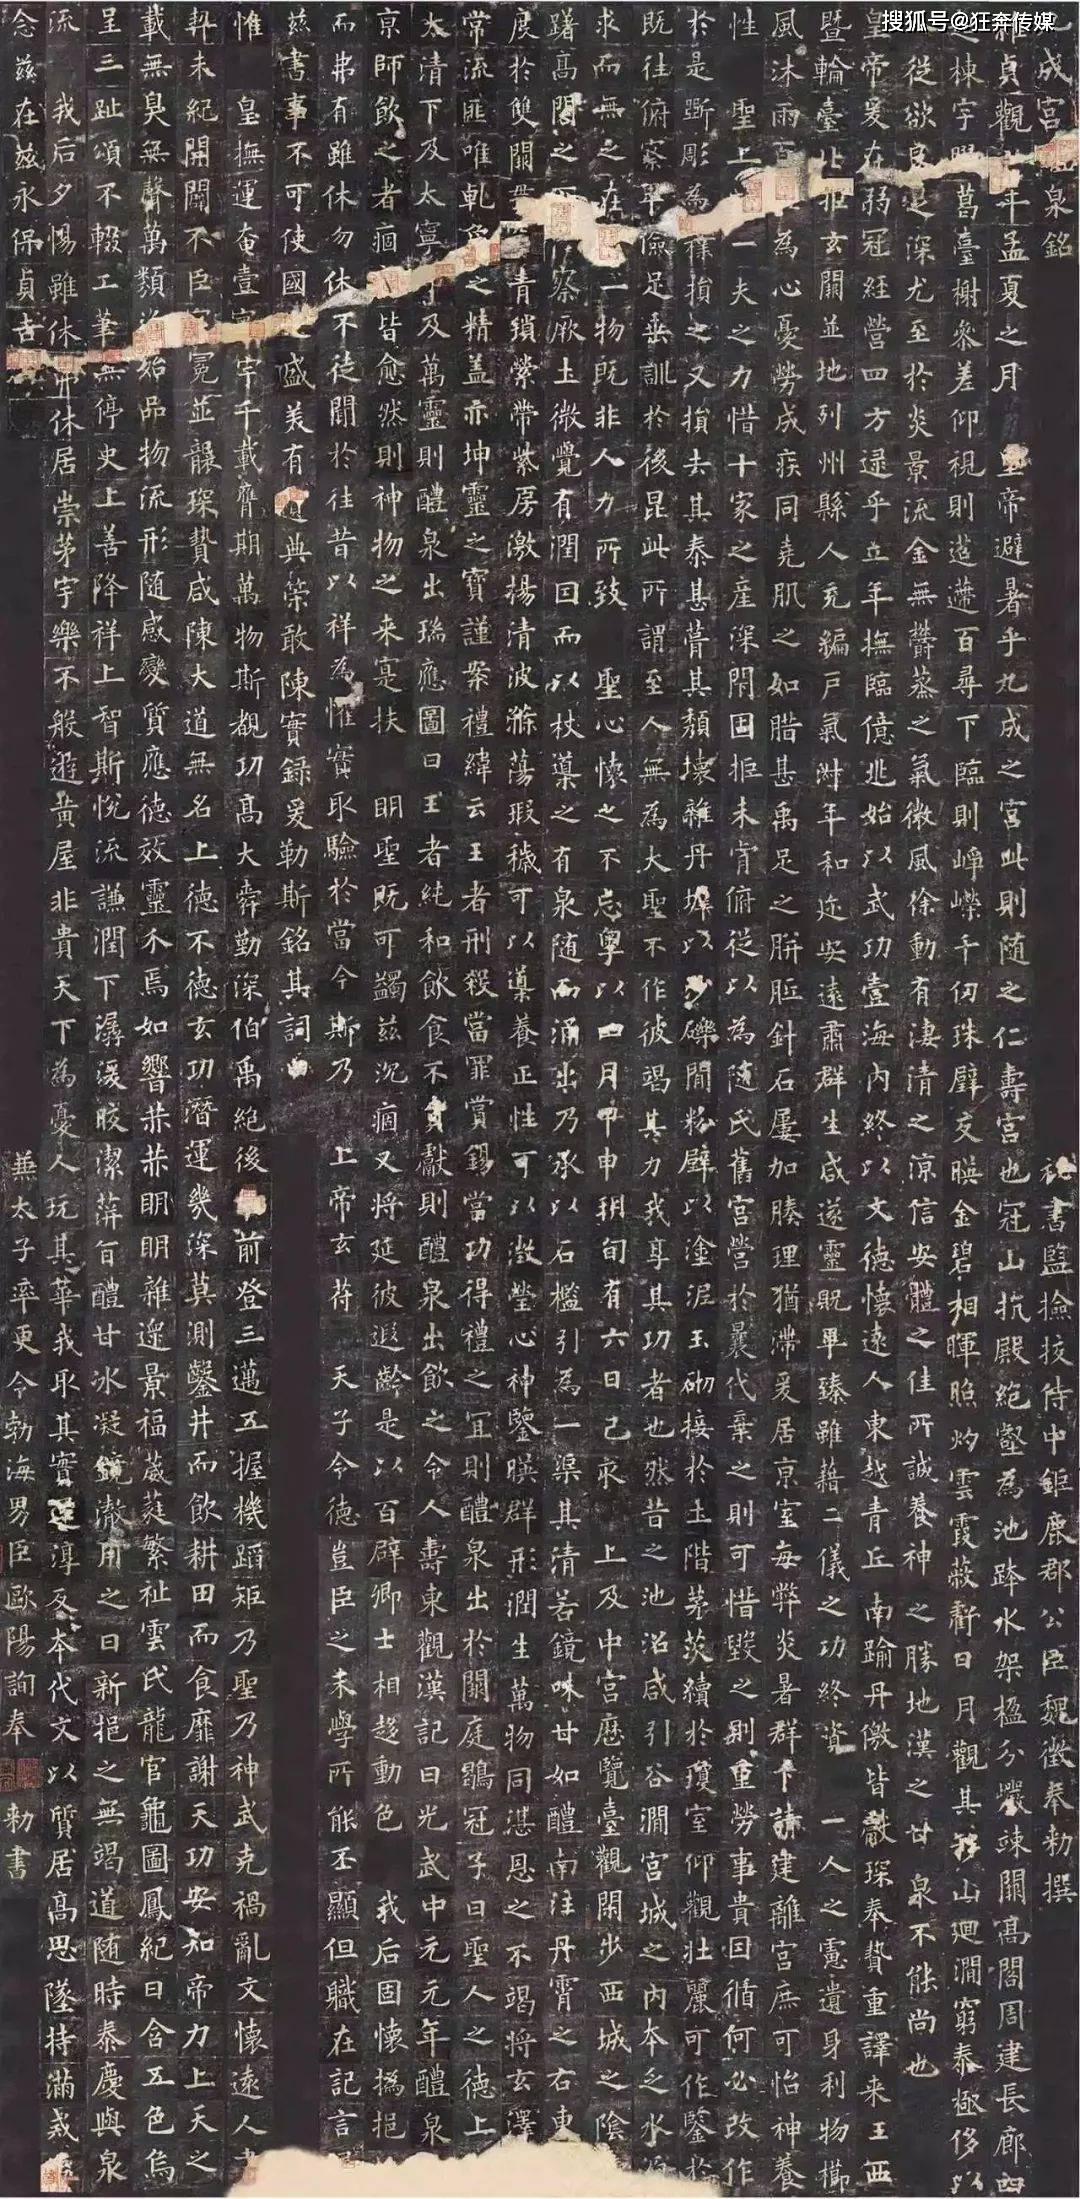 成宮泉銘 秘書監撿挍侍中鉅鹿郡公臣魏徵奉勅撰
維貞觀年孟夏之月 皇帝避暑乎九成之宮此則随之仁壽宮也冠山抗殿絕壑為池跨水架楹分巖竦闕高閣周建長廊四
之棟宇膠葛臺榭參差仰視則迢遰百尋下臨則崢嶸千仞珠璧交暎金碧相暉照灼雲霞蔽虧日月觀其移山迴澗窮泰極侈以
從欲良足深尤至於炎景流金無鬱蒸之氣微風徐動有淒清之涼信安體之佳所誠養神之勝地漢之甘泉不能尚也
皇帝爰在弱冠經營四方逯乎立年撫臨億兆始以武功壹海内終以文德懷遠人東越青丘南踰丹儌皆獻琛奉贄重譯来王西
暨輪臺北拒玄闕並地列州縣人充編戶氣淑年和迩安遠肅群生咸遂靈貺畢臻雖藉二儀之功終資 一人之慮遺身利物櫛
風沐雨百為心憂勞成疾同堯肌之如腊甚禹足之胼胝針石屢加腠理猶滯爰居京室每弊炎暑群下請建離宮庶可怡神養
性 聖上一夫之力惜十家之產深閇固拒未肯俯從以為随氏舊宮營於曩代棄之則可惜毀之則重勞事貴因循何必改作
於是斲彫為樸損之又損去其泰甚葺其頹壞雜丹墀以沙礫間粉壁以塗泥玉砌接於土階茅茨續於瓊室仰觀壯麗可作鑒於
既往俯察卑儉足垂訓於後昆此所謂至人無為大聖不作彼竭其力我享其功者也然昔之池沼咸引谷澗宮城之内本乏水源
求而無之在一物既非人力所致 聖心懷之不忘粤以四月甲申朔旬有六日己亥 上及中宮歷覽臺觀閑步西城之陰
躇高閣之察厥土微覺有潤因而以杖導之有泉随而涌出乃承以石檻引為一渠其清若鏡味甘如醴南注丹霄之右東
度於雙闕貫青瑣縈帶紫房激揚清波滌蕩瑕穢可以導養正性可以澂瑩心神鑒暎群形潤生萬物同湛恩之不竭將玄澤
常流匪唯乹象之精盖亦坤靈之寶謹案禮緯云王者刑殺當罪賞錫當功得禮之宜則醴泉出於闕庭鶡冠子曰聖人之德上
太清下及太寧中及萬靈則醴泉出瑞應圖曰王者純和飲食不貢獻則醴泉出飲之令人壽東觀漢記曰光武中元元年醴泉
京師飲之者痼皆愈然則神物之来寔扶 明聖既可蠲茲沉痼又將延彼遐齡是以百辟卿士相趍動色 我后固懷撝挹
而弗有雖休勿休不徒聞於往昔以祥為懼實取驗於當今斯乃 上帝玄符 天子令德豈臣之末學所能丕顯但職在記言屬
茲書事不可使國之盛美有遺典策敢陳實録爰勒斯銘其詞曰
惟 皇撫運奄壹寰宇千載膺期萬物斯覩功高大舜勤深伯禹絕後前登三邁五握機蹈矩乃聖乃神武克禍亂文懷遠人書
契未紀開闢不臣冠冕並襲琛贄咸陳大道無名上德不德玄功潛運幾深莫測鑿井而飲耕田而食靡謝天功安知帝力上天之
載無臭無聲萬類資始品物流形随感變質應德效靈介焉如響赫赫明明雜遝景福葳蕤繁祉雲氏龍官龜圖鳳紀日含五色烏
呈三趾頌不輟工筆無停史上善降祥上智斯悅流謙潤下潺湲皎潔蓱旨醴甘冰凝鏡澈用之日新挹之無竭道随時泰慶與泉
流 我后夕惕雖休弗休居崇茅宇樂不般遊黃屋非貴天下為憂人玩其華我取其實還淳反本代文以質居高思墜持滿戒
念茲在茲永保貞吉 兼太子率更令勃海男臣歐陽詢奉 勅書
搜狐号@狂奔传媒